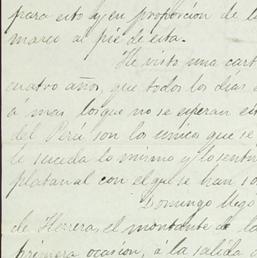 para esto y en proporcion de l
marco al pié de esta.
He visto una cart
cuatro años, que todos los dias e
á mas los que no se esperan e
del Perú son los unicos que se
le suceda lo mismo y lo sent
platanal con el que se han so
Domingo llego
de Herrera, el montante de l
primera ocasion, á la salida d